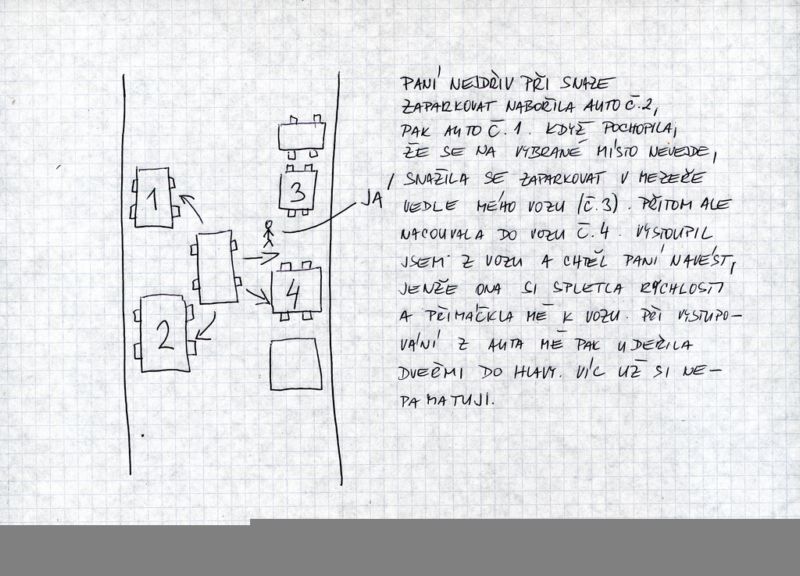 PANÍ NEJDŘÍV PŘI SNAZE
ZAPARKOVAT NABOŘILA AUTO Č.2,
PAK AUTO Č.1. KDYŽ POCHOPILA,
ŽE SE NA VYBRANÉ MÍSTO NEVEJDE,
SNAŽILA SE ZAPARKOVAT V MEZEŘE
VEDLE MÉHO VOZU (Č.3). PŘITOM ALE
NACOUVALA DO VOZU Č.4. VYSTOUPIL
JSEM Z VOZU A CHTĚL PANÍ NAVÉST,
JENŽE ONA SI SPLETLA RYCHLOSTI
A PŘIMÁČKLA MĚ K VOZU. PŘI VYSTUPO-
VÁNÍ Z AUTA MĚ PAK UDEŘILA
DVEŘMI DO HLAVY. VÍC UŽ SI NE-
PAMATUJI.
1
3
JÁ
4
2